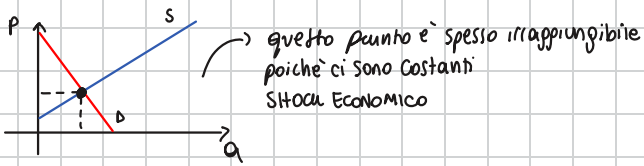 P
S
D
Q
questo punto è spesso irraggiungibile
poichè ci sono costanti
SHOCK ECONOMICO